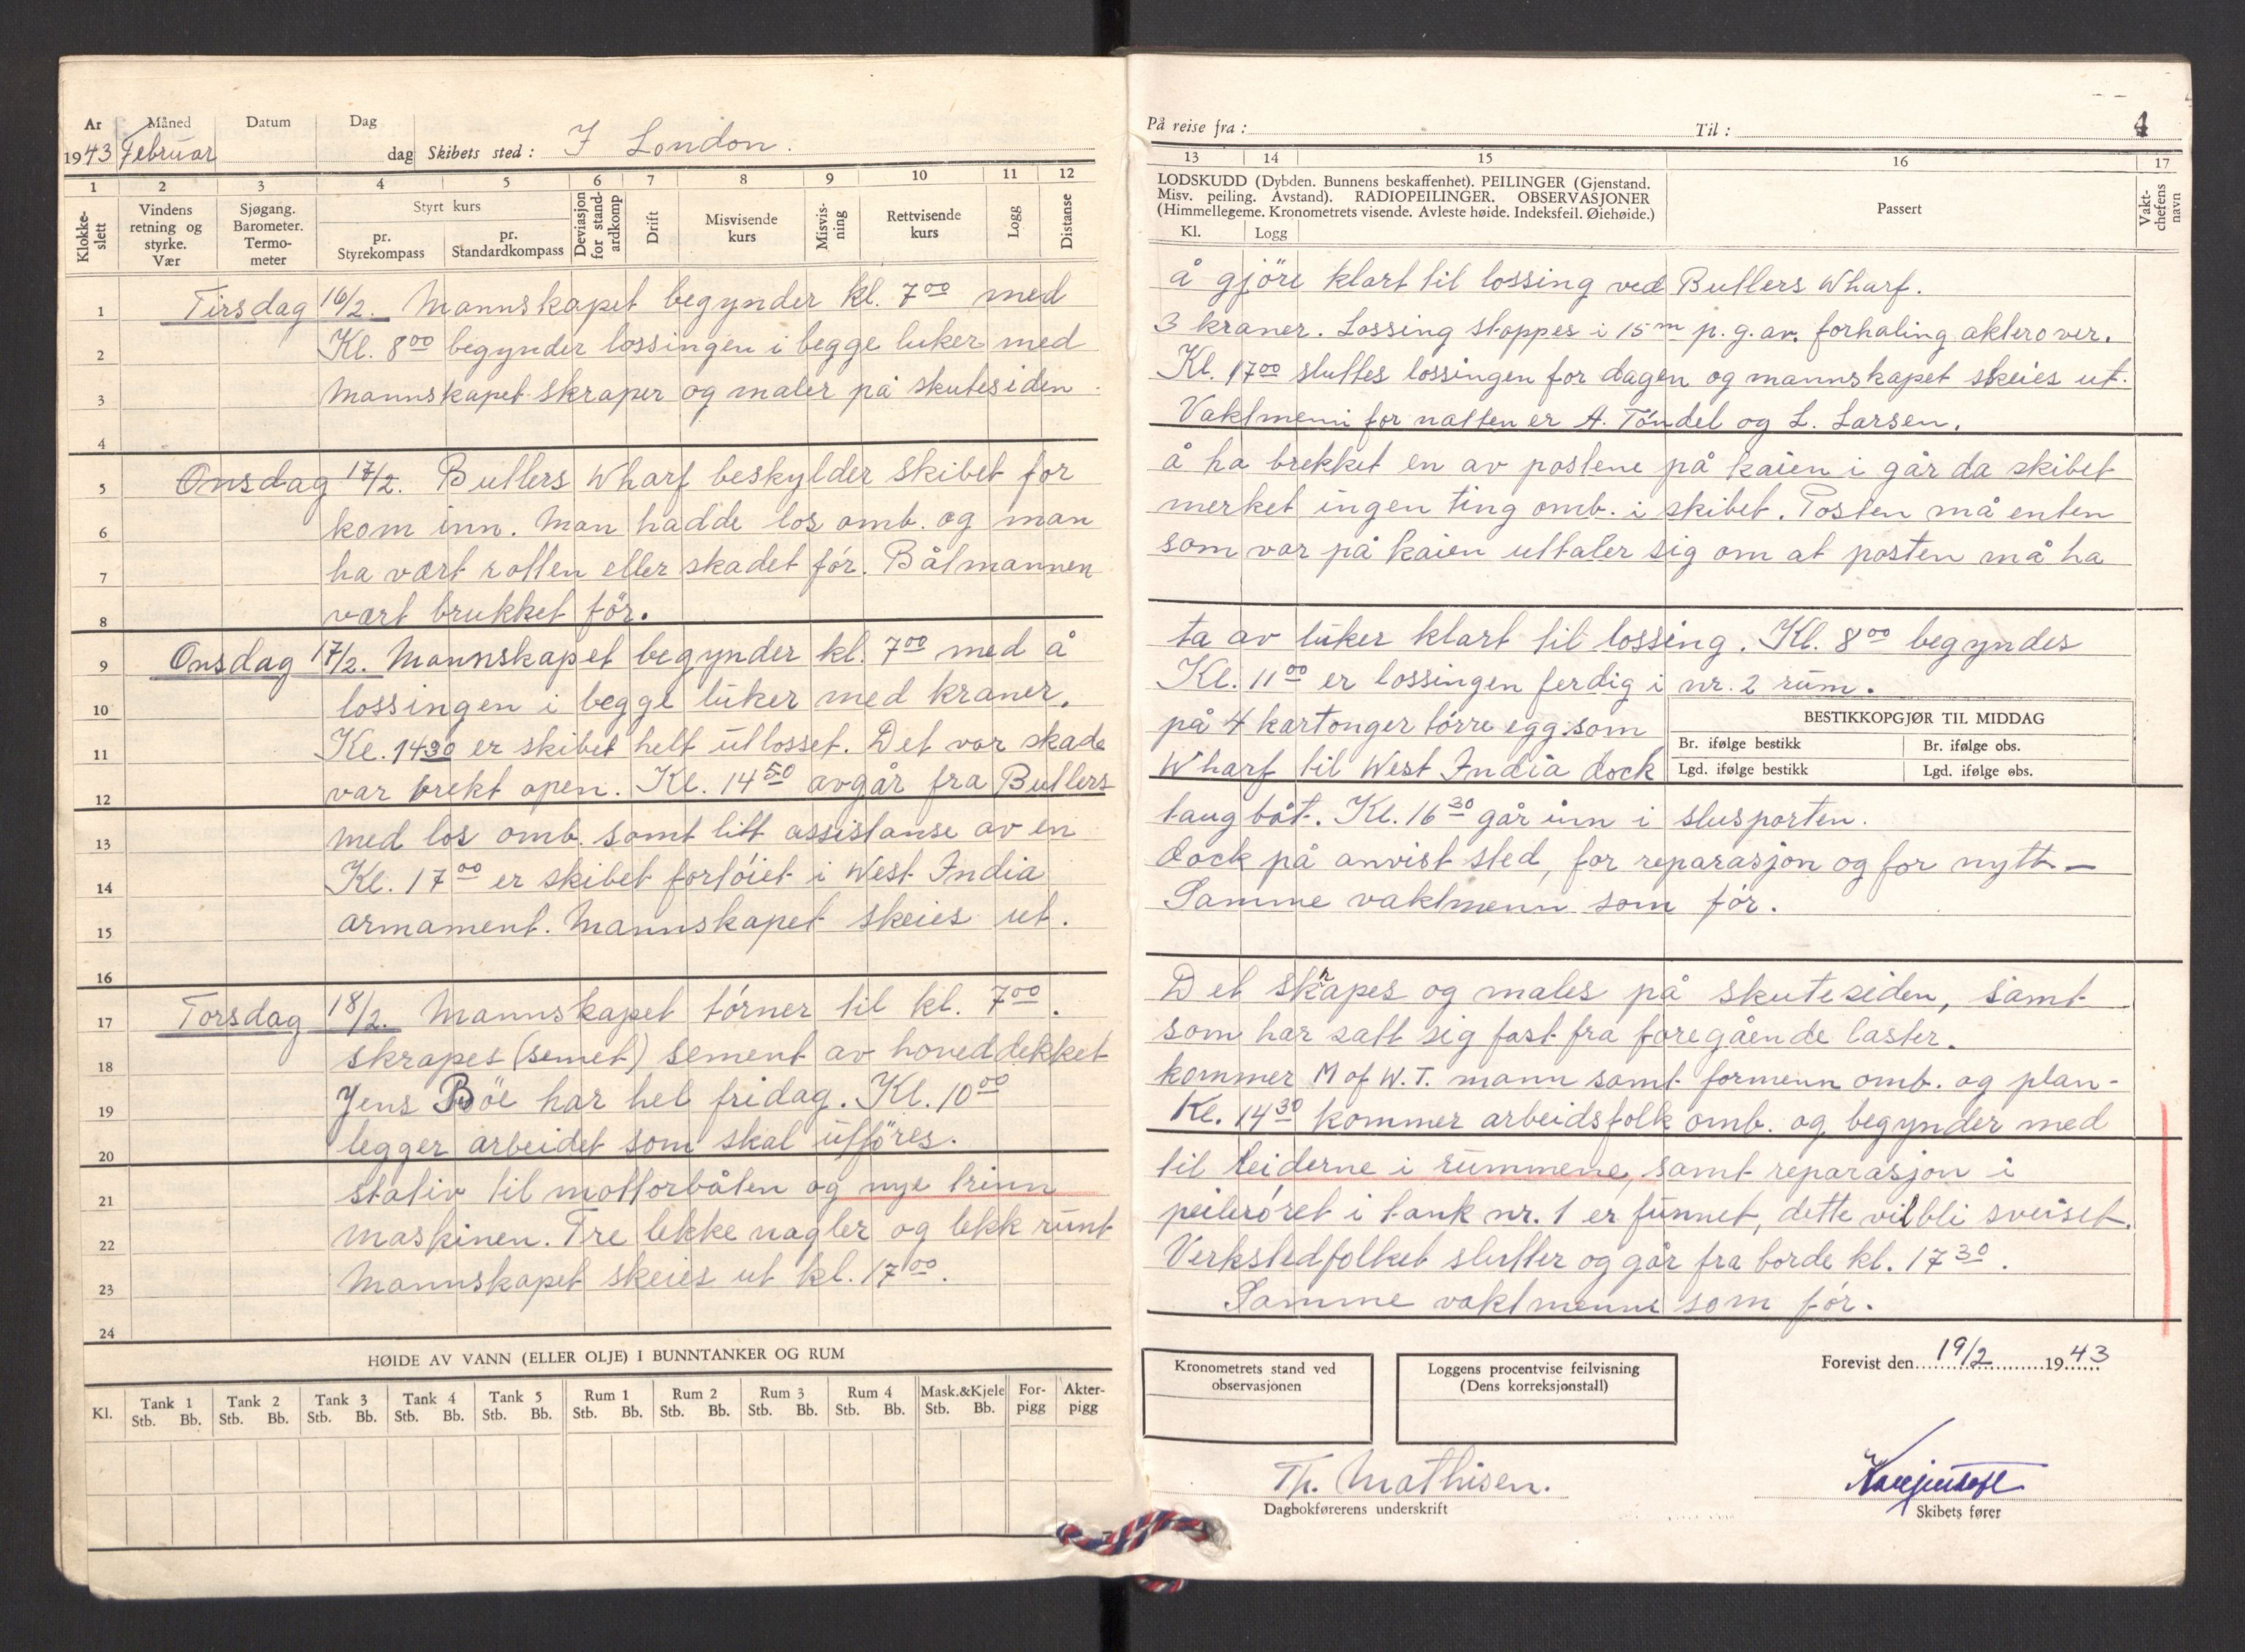 Ar Måned Datum Dag
1943 Februar dag Skibets sted: I London.
1 2 3 4 5 6 7 8 9 10 11 12
Klokke-slett
Vindens retning og styrke. Vær
Sjøgang. Barometer. Termo-meter
Styrt kurs
pr. Styrekompass
pr. Standardkompass
Deviasjon for stand-ardkomp
Drift
Misvisende kurs
Misvis-ning
Rettvisende kurs
Logg
Distanse
1 Tirsdag 16/2. Mannskapet begynder kl. 700 med
2 Kl. 800 begynder lossingen i begge luker med
3 Mannskapet skraper og maler på skutesiden
4
5 Onsdag 17/2. Butlers Wharf beskylder skibet for
6 kom inn. Man hadde los omb. og man
7 ha vært rotten eller skadet før. Båtmannen
8 vært brukket før.
9 Onsdag 17/2. Mannskapet begynder kl. 700 med å
10 lossingen i begge luker med kraner.
11 Kl. 1430 er skibet helt utlosset. Det var skade
12 var brekt open. Kl. 1450 avgår fra Butlers
13 med los omb. samt litt assistanse av en
14 Kl. 1700 er skibet fortøiet i West India
15 armament. Mannskapet skeies ut.
16
17 Torsdag 18/2. Mannskapet tørner til kl. 700.
18 skrapes (semet) sement av hoveddekket
19 Jens Böe har hel fridag. Kl. 1000
20 legger arbeidet som skal utføres.
21 stativ til mottorbåten og nye trinn
22 maskinen. Tre lekke nagler og lekk runt
23 Mannskapet skeies ut kl. 1700.
24
HØIDE AV VANN (ELLER OLJE) I BUNNTANKER OG RUM
Kl.
Tank 1 Tank 2 Tank 3 Tank 4 Tank 5 Rum 1 Rum 2 Rum 3 Rum 4 Mask.&Kjele For-pigg Akter-pigg
Stb. Bb. Stb. Bb. Stb. Bb. Stb. Bb. Stb. Bb. Stb. Bb. Stb. Bb. Stb. Bb. Stb. Bb. Stb. Bb.
På reise fra: Til: 4
13 14 15 16 17
LODSKUDD (Dybden. Bunnens beskaffenhet). PEILINGER (Gjenstand.
Misv. peiling. Avstand). RADIOPEILINGER. OBSERVASJONER
(Himmellegeme. Kronometrets visende. Avleste høide. Indeksfeil. Øiehøide.)
Kl. Logg
Passert
Vakt-chefens navn
å gjöre klart til lossing ved Butlers Wharf.
3 kraner. Lossing stoppes i 15m p.g.av. forhaling akterover.
Kl. 1700 sluttes lossingen for dagen og mannskapet skeies ut.
Vaktmenn for natten er A. Tøndel og L. Larsen.
å ha brekket en av postene på kaien i går da skibet
merket ingen ting omb. i skibet. Posten må enten
som var på kaien uttaler sig om at posten må ha
ta av luker klart til lossing. Kl. 800 begyndes
Kl. 1100 er lossingen ferdig i nr. 2 rum.
på 4 kartonger tørre egg som
Wharf til West India dock
BESTIKKOPGJØR TIL MIDDAG
Br. ifølge bestikk Br. ifølge obs.
Lgd. ifølge bestikk Lgd. ifølge obs.
taugbåt. Kl. 1630 går inn i slusporten.
Dock på anvist sted, for reparasjon og for nytt –
Samme vaktmenn som før.
Det skrapes og males på skutesiden, samt
som har satt sig fast fra foregående laster.
kommer M of W.T. mann samt formenn omb. og plan-
Kl. 1430 kommer arbeidsfolk omb. og begynder med
til leiderne i rummene, samt reparasjon i
peilerøret i tank nr. 1 er funnet, dette vil bli sveiset.
Verkstedfolket slutter og går fra borde kl. 1730.
Samme vaktmenn som før.
Kronometrets stand ved observasjonen
Loggens procentvise feilvisning (Dens korreksjonstall)
Forevist den 19/2 1943
Th. Mathisen.
Dagbokførerens underskrift
Skibets fører